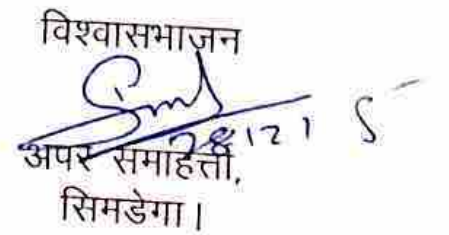 विश्वासभाजन
अपर समाहर्त्ता,
सिमडेगा।